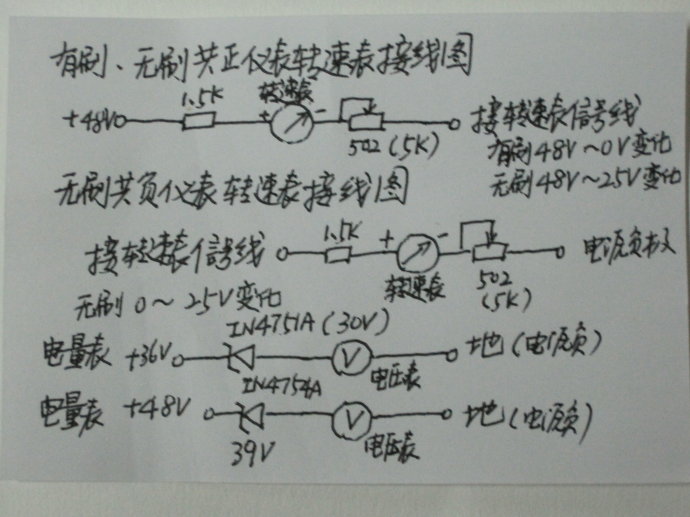 有刷、无刷共正仪表转速表接线图
1.5K
转速表
+48V
+
-
502 (5K)
接转速表信号线
有刷48V~0V变化
无刷48V~25V变化
无刷共负仪表转速表接线图
接转速表信号线
1.5K
+
-
转速表
502
(5K)
电源负极
无刷0~25V变化
IN4751A (30V)
电量表 +36V
V
电压表
地(电源负)
IN4754A
电量表 +48V
39V
V
电压表
地(电源负)